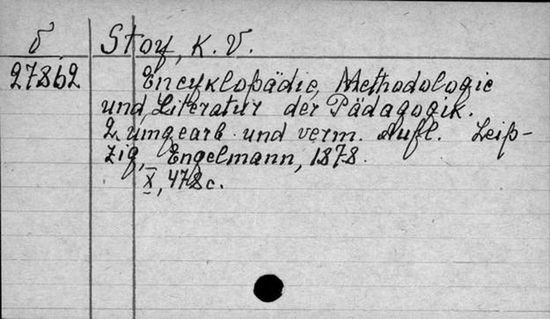 б Stoy, K. V.
27862 Encyklopädie, Methodologie
und Literatur der Pädagogik.
2 umgearb. und verm. Aufl. Leip-
zig, Engelmann, 1878.
X, 478 c.